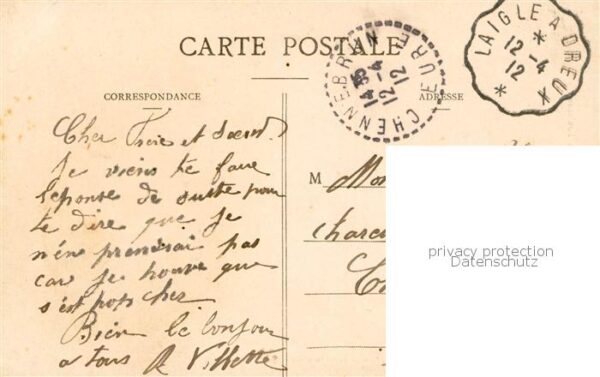 CARTE POSTALE
CORRESPONDANCE
ADRESSE
CHENNEBRUN EURE
14 35
12 -4
12
LAIGLE A DREUX
*
12 -4
12
*
Cher Frère et Sœur.
Je viens te faire
reponse de suite pour
te dire que je
n'en prendrai pas
car je trouve que
s'est pas cher
Bien le bonjour
a tous A Villette
M
privacy protection
Datenschutz